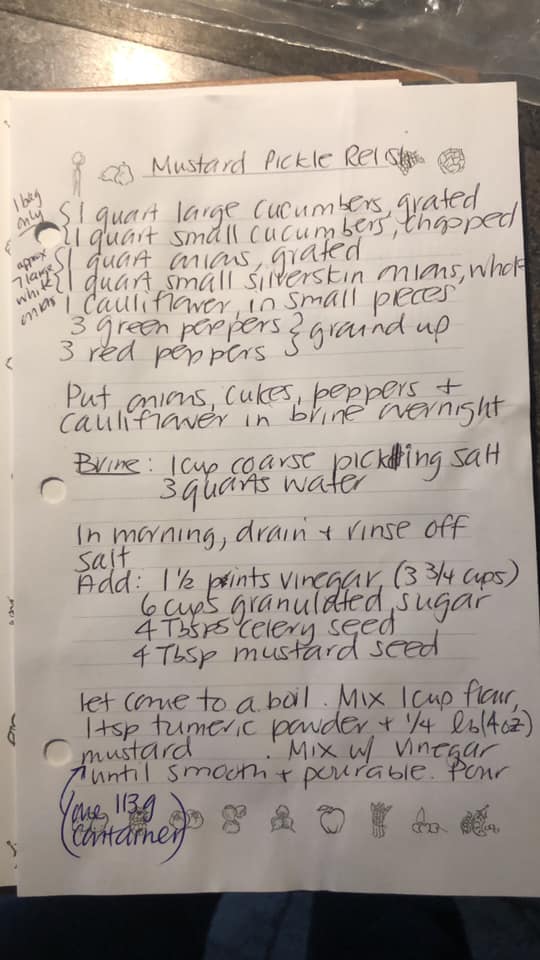 Mustard Pickle Relish
1 bag
only
{ 1 quart large cucumbers, grated
1 quart small cucumbers, chopped
aprox
7 large
white
onions
{ 1 quart onions, grated
1 quart small silverskin onions, whole
1 cauliflower, in small pieces
3 green peppers } ground up
3 red peppers
Put onions, cukes, peppers +
cauliflower in brine overnight
Brine: 1 cup coarse pickling salt
3 quarts water
In morning, drain + rinse off
salt
Add: 1 1/2 pints vinegar (3 3/4 cups)
6 cups granulated sugar
4 Tbsps celery seed
4 Tbsp mustard seed
let come to a boil. Mix 1 cup flour,
1 tsp tumeric powder + 1/4 lb (4oz)
mustard . Mix w/ vinegar
until smooth + pourable. Pour
(one 113g
container)